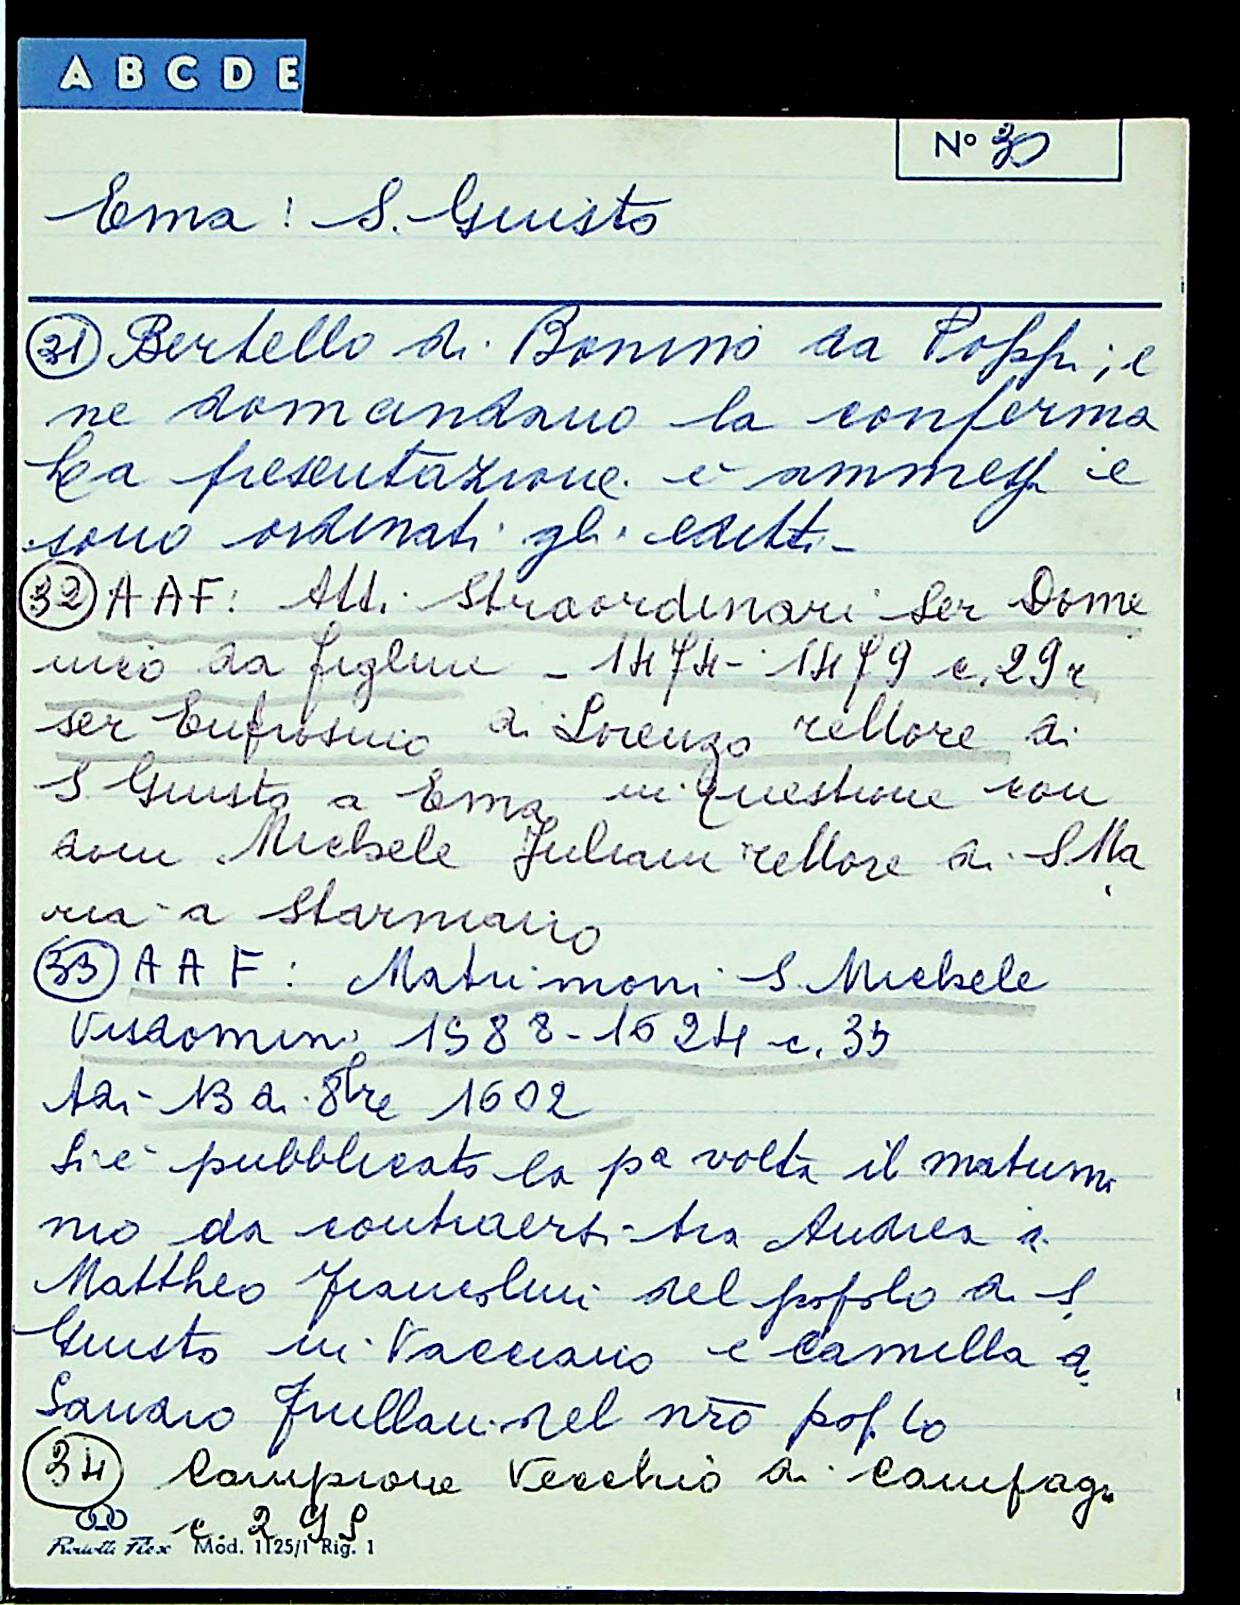 A B C D E
N° 30
Ema: S. Giusto
31 Bertello di Bonino da Poppi; e
ne domandano la conferma
La presentazione è ammessa e
sono ordinati gli editti -
32 AAF: Atti Straordinari Ser Dome
nico da Figline - 1474-1479 c. 29r
ser Eufrosino di Lorenzo rettore di
S Giusto a Ema in questione con
dom Michele Juliani rettore di S. Ma
ria a Starniano
33 AAF: Matrimoni S. Michele
Visdomini 1588-1624 c. 35
Adi 13 di 8bre 1602
Si è pubblicato la pa volta il matrim
nio da contraersi tra Andrea
Mattheo Francolini del popolo di S.
Giusto in Vacciano e Camilla
Sandro Frullani del nro popolo
34 Campione Vecchio di Campag
c. 295
Mod. 1125/1 Rig. 1